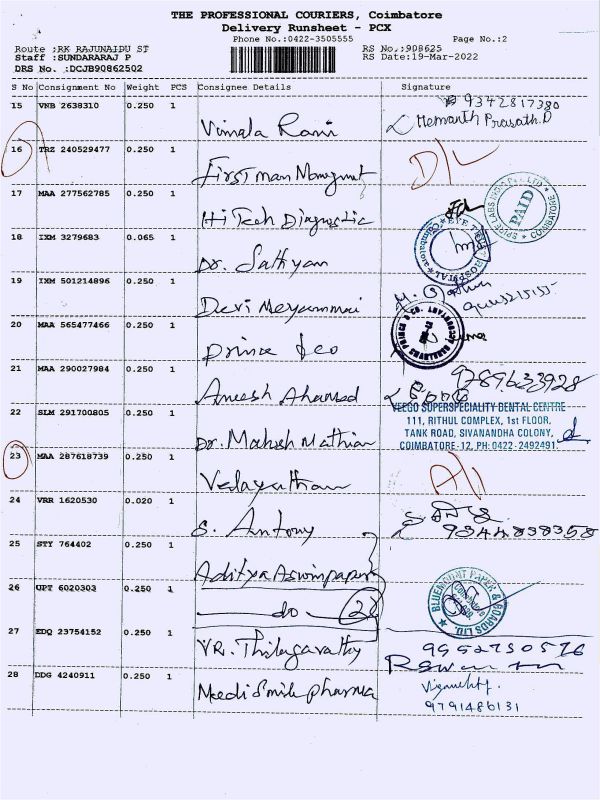 THE PROFESSIONAL COURIERS, Coimbatore
Delivery Runsheet - PCX
Phone No.:0422-3505555 Page No.:2
Route :RK RAJUNAIDU ST RS No.:908625
Staff :SUNDARARAJ P RS Date:19-Mar-2022
DRS No. :DCJB90862502
S No Consignment No Weight PCS Consignee Details Signature
15 VNB 2638310 0.250 1 Vimala Rani 9342817380
Hemanth Prasath.D
16 TRZ 240529477 0.250 1 First man D/L
17 MAA 277562785 0.250 1 Hi Tech Diagnostic
PAID
COIMBATORE
18 IXM 3279683 0.065 1 Dr. Sathyan
HOSPITAL
Coimbatore
19 IXM 501214896 0.250 1 Devi Meyammai
20 MAA 565477466 0.250 1 Prince & co
21 MAA 290027984 0.250 1 Aneesh Ahamed 9789633928
22 SLM 291700805 0.250 1 Dr. Mahesh Mathian
VEEGO SUPERSPECIALITY DENTAL CENTRE
111, RITHUL COMPLEX, 1st FLOOR,
TANK ROAD, SIVANANDHA COLONY,
COIMBATORE-12. PH: 0422-2492491.
23 MAA 287618739 0.250 1 Velayutham
24 VRR 1620530 0.020 1 S. Antony 9344838358
25 STY 764402 0.250 1 Aditya Aswinpaper
26 UPT 6020303 0.250 1 do
BLUEMOUNT PAPER & BOARDS LTD.
27 EDQ 23754152 0.250 1 VR. Thilagavathy 9952730576
28 DDG 4240911 0.250 1 Medi Smile pharma
9791486131